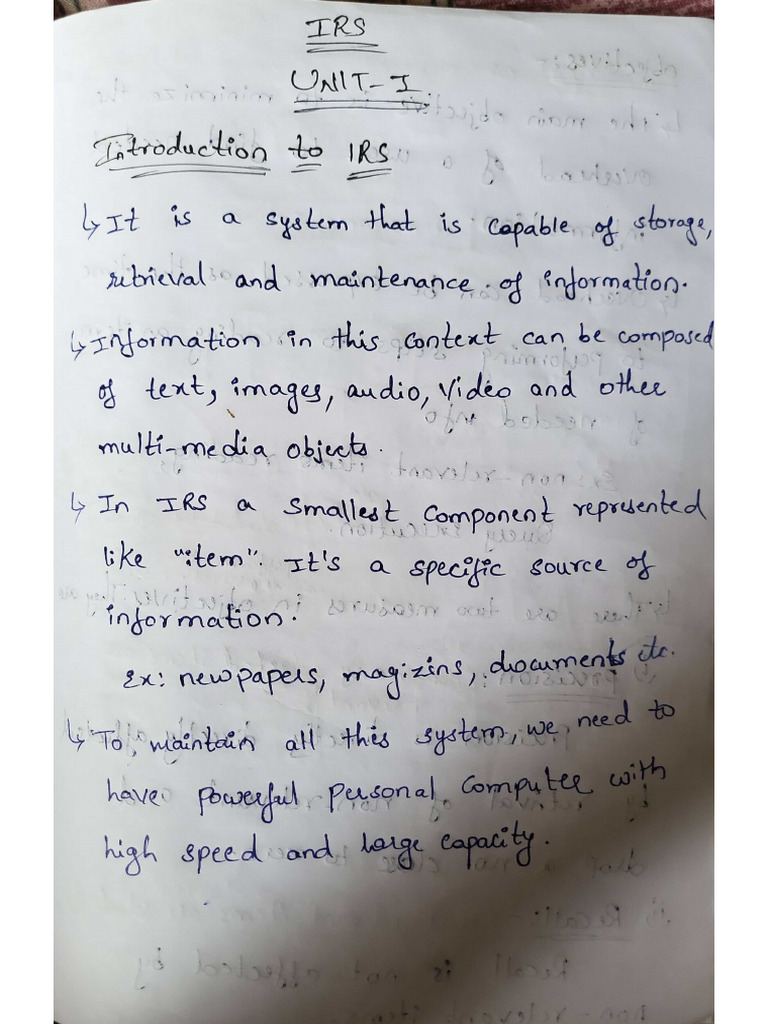 IRS
UNIT-I
Introduction to IRS
↳ It is a system that is capable of storage,
retrieval and maintenance of information.
↳ Information in this context can be composed
of text, images, audio, video and other
multi-media objects.
↳ In IRS a smallest component represented
like "item". It's a specific source of
information.
Ex: newpapers, magizins, documents etc.
↳ To maintain all this system, we need to
have powerful personal computer with
high speed and large capacity.